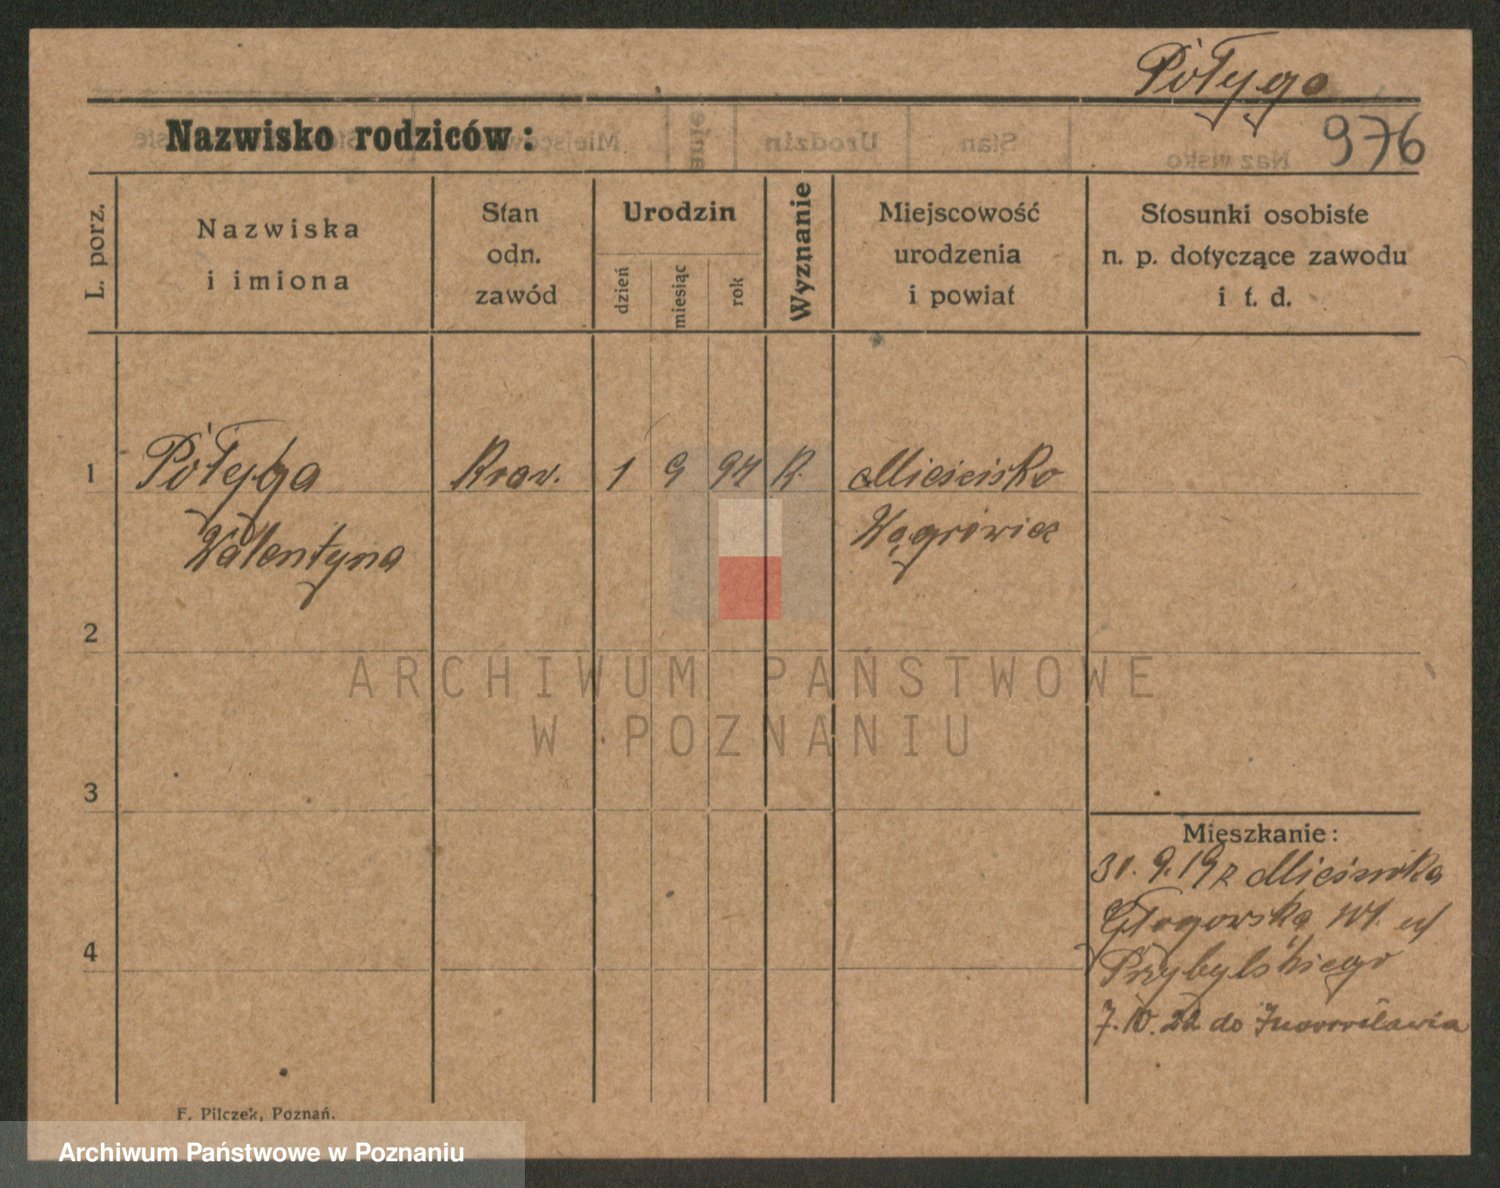 Połyga
Nazwisko rodziców:
976
L. porz.
Nazwiska
i imiona
Stan
odn.
zawód
Urodzin
dzień
miesiąc
rok
Wyznanie
Miejscowość
urodzenia
i powiat
Stosunki osobiste
n. p. dotyczące zawodu
i t. d.
1 Połyga Kraw. 1 9 94 K. Mieścisko
Walentyna Wągrówiec
2
3
4
Mieszkanie:
31. 9. 19 z Mieśсiska
Głogowska
Przybylskiego
7. 10. 22 do Inowrocławia
F. Pilczek, Poznań.
ARCHIWUM PAŃSTWOWE
W POZNANIU
Archiwum Państwowe w Poznaniu